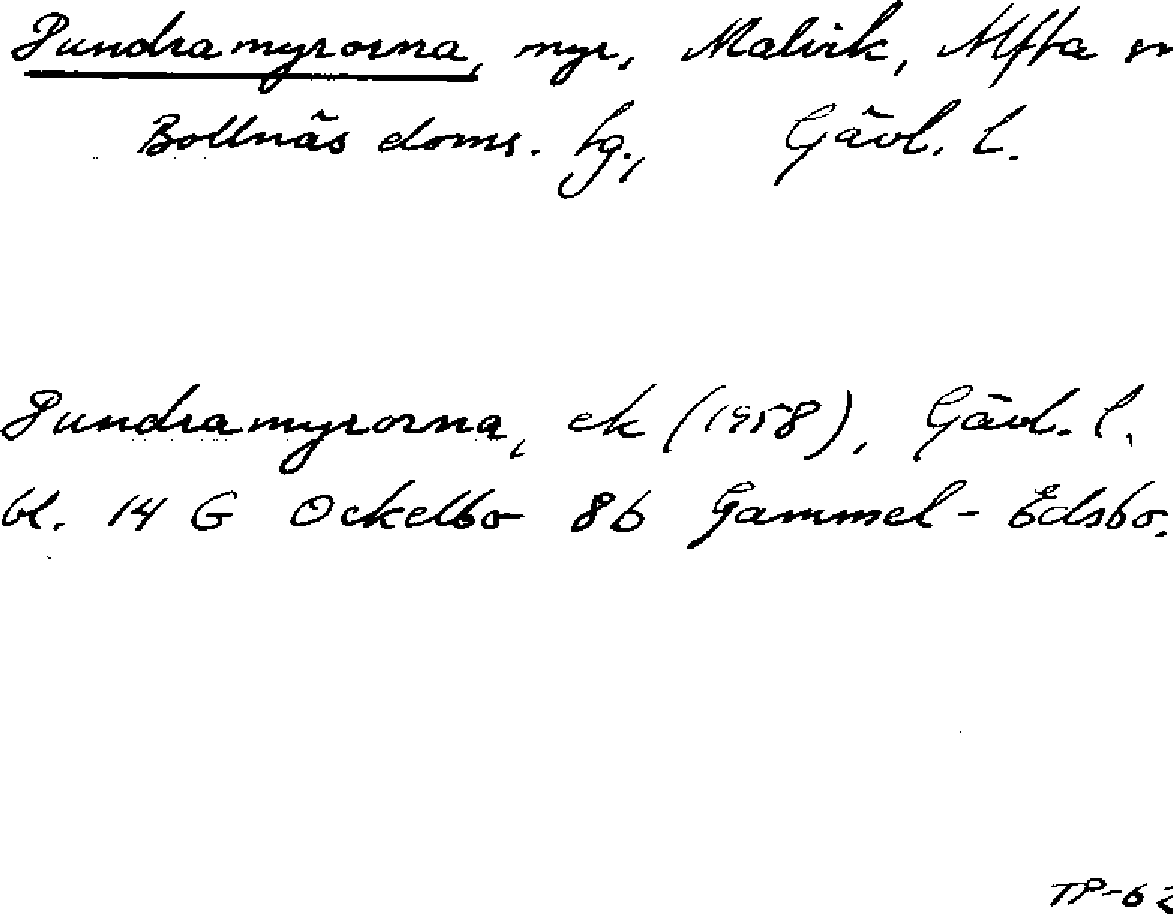 Pundramyrorna, myr, Malvik, Alfta
Bollnäs doms. hg., Gävl. l.
Pundramyrorna, ek (1958), Gävl. l.
bl. 14 G Ockelbo 8b Gammel-Edsbo.
TP-62